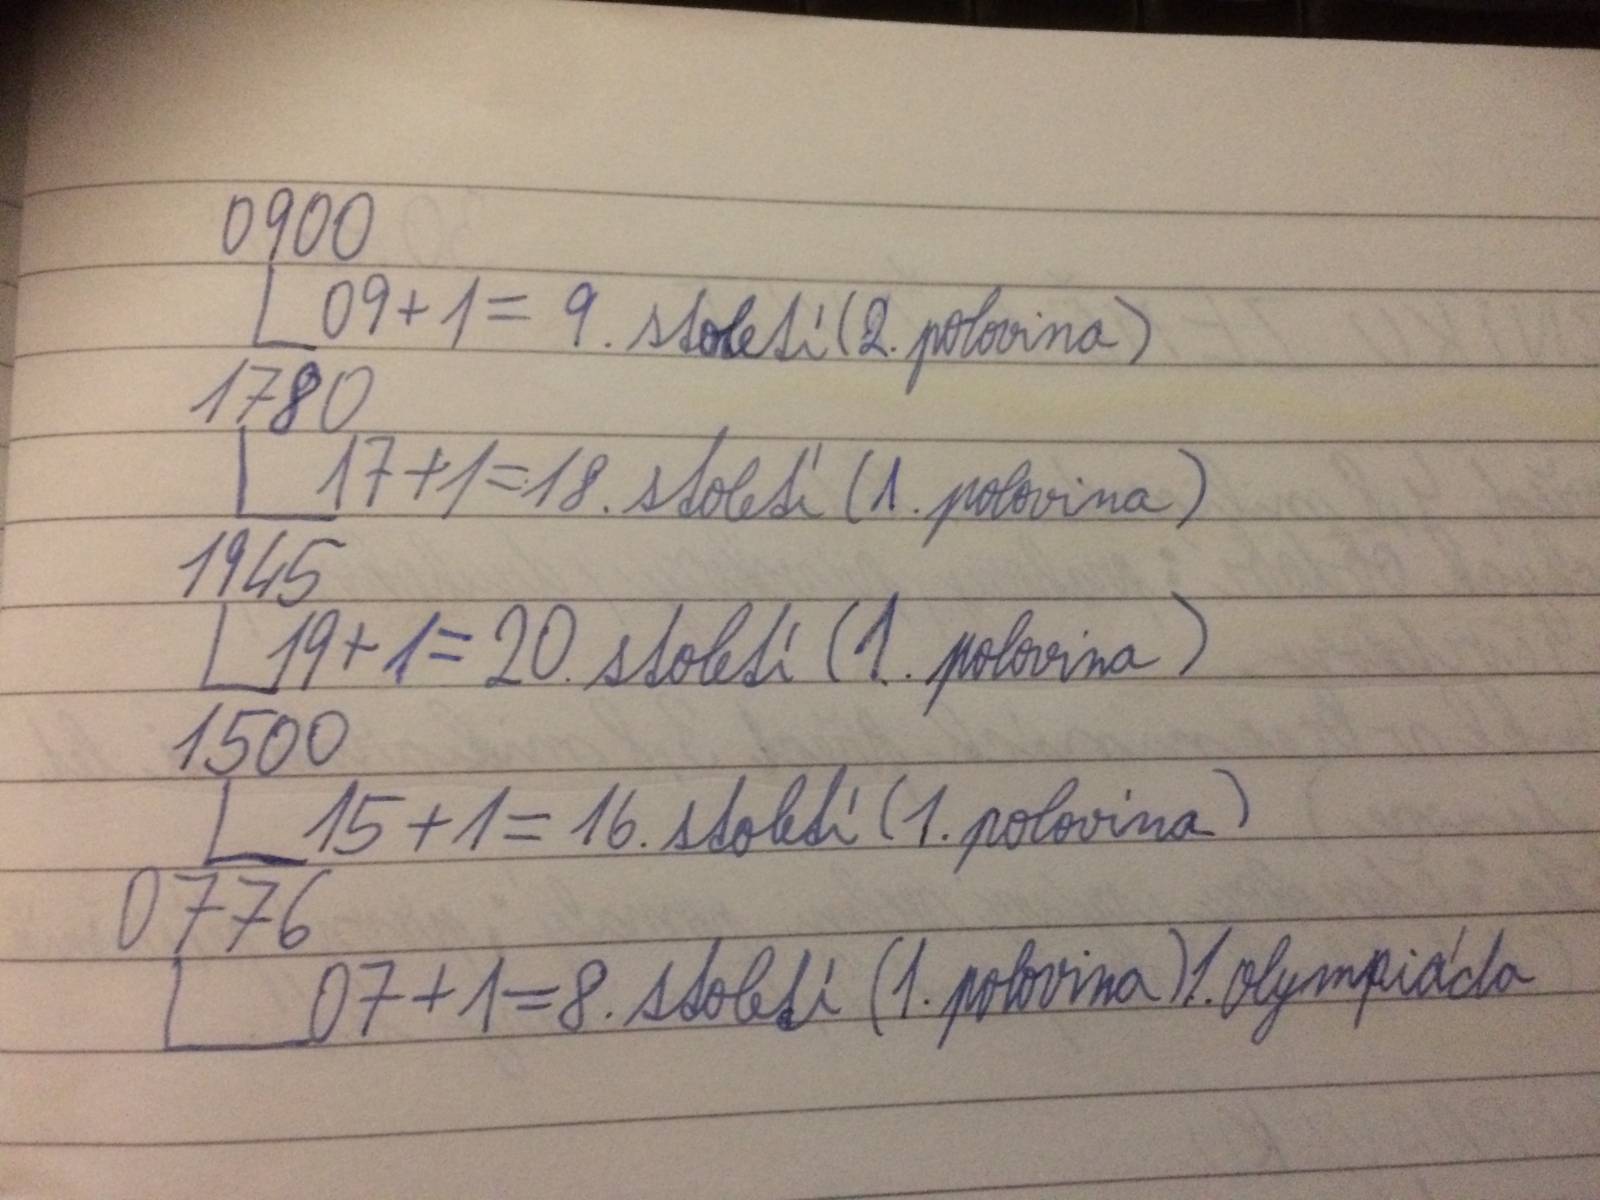 0900
09+1= 9. století (2. polovina)
1780
17+1=18. století (1. polovina)
1945
19+1= 20. století (1. polovina)
1500
15+1= 16. století (1. polovina)
0776
07+1=8. století (1. polovina) 1. olympiáda